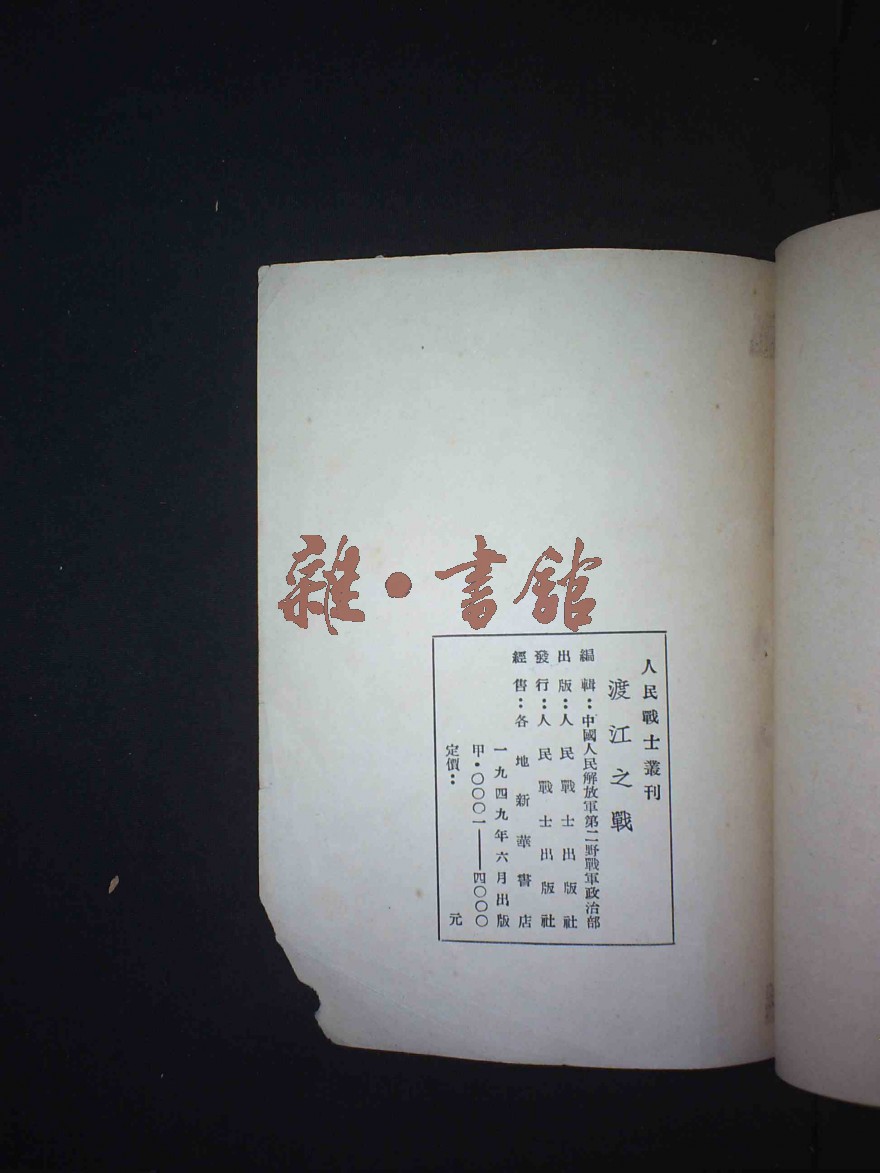 雜·書館
人民戰士叢刊
渡江之戰
編輯：中國人民解放軍第二野戰軍政治部
出版：人民戰士出版社
發行：人民戰士出版社
經售：各地新華書店
一九四九年六月出版
甲·〇〇〇一——四〇〇〇
定價：元